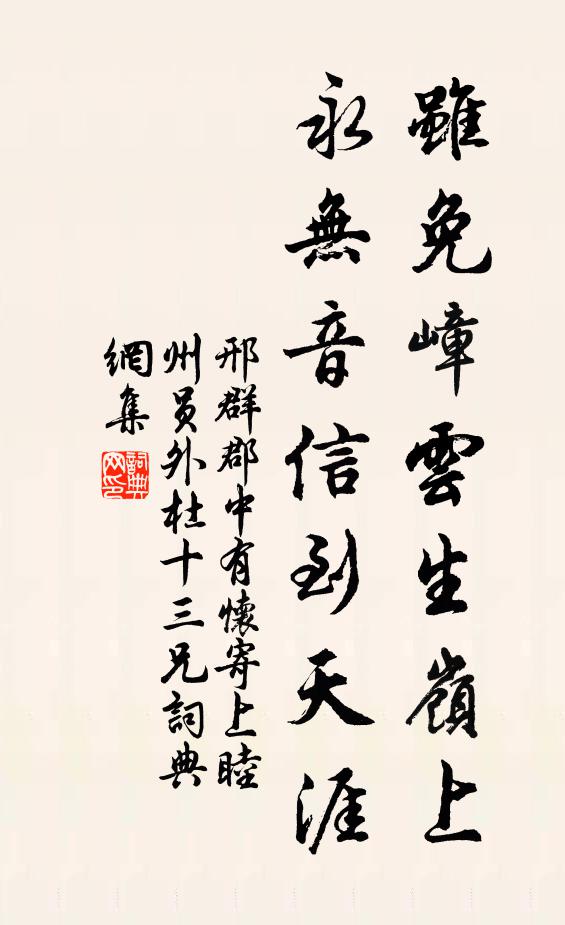 雖免嶂雲生嶺上
永無音信到天涯
邢群郡中有懷寄上睦
州員外杜十三兄詞典
網集
詞典
网印